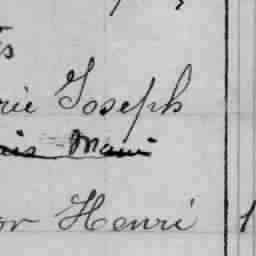 is
rie Joseph
is Marie
or Henri 1